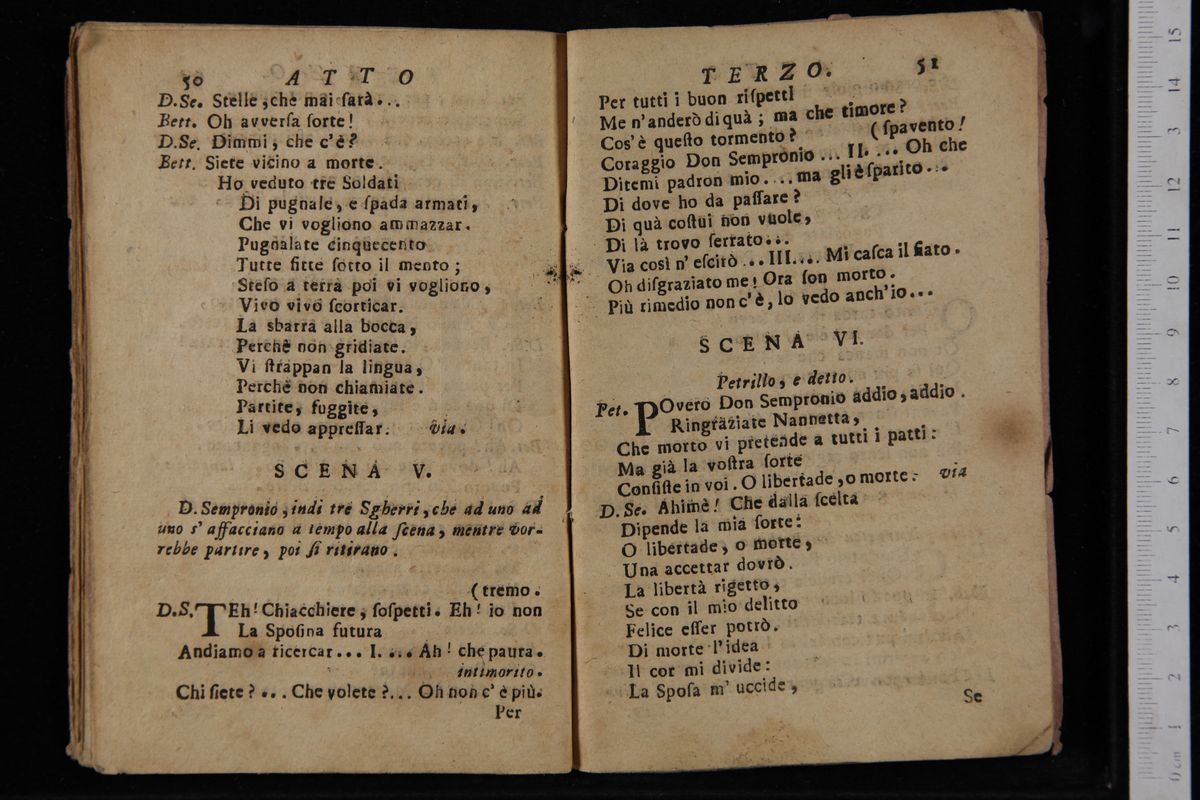 50 ATTO
D.Se. Stelle, che mai ſarà...
Bett. Oh avverſa ſorte!
D.Se. Dimmi, che c'è?
Bett. Siete vicino a morte.
Ho veduto tre Soldati
Di pugnale, e ſpada armati,
Che vi vogliono ammazzar.
Pugnalate cinquecento
Tutte fitte ſotto il mento;
Steſo a terra poi vi vogliono,
Vivo vivo ſcorticar.
La sbarra alla bocca,
Perchè non gridiate.
Vi ſtrappan la lingua,
Perchè non chiamiate.
Partite, fuggite,
Li vedo appreſſar. via.
SCENA V.
D. Sempronio, indi tre Sgherri, che ad uno ad
uno s' affacciano a tempo alla ſcena, mentre vor-
rebbe partire, poi ſi ritirano.
(tremo.
D.S. TEh! Chiacchiere, ſoſpetti. Eh! io non
La Spoſina futura
Andiamo a ricercar... I. ... Ah! che paura.
intimorito.
Chi ſiete?... Che volete?... Oh non c' è più.
Per
TERZO. 51
Per tutti i buon riſpetti
Me n'anderò di quà; ma che timore?
Cos'è queſto tormento? (ſpavento!
Coraggio Don Sempronio... II. ... Oh che
Ditemi padron mio. ...ma gli è ſparito...
Di dove ho da paſſare?
Di quà coſtui non vuole,
Di là trovo ſerrato...
Via così n' eſcirò...III.... Mi caſca il fiato.
Oh diſgraziato me! Ora ſon morto.
Più rimedio non c'è, lo vedo anch'io...
SCENA VI.
Petrillo, e detto.
Pet. POvero Don Sempronio addio, addio.
Ringraziate Nannetta,
Che morto vi pretende a tutti i patti:
Ma già la voſtra ſorte
Conſiſte in voi. O libertade, o morte. via
D. Se. Ahimè! Che dalla ſcelta
Dipende la mia ſorte:
O libertade, o morte,
Una accettar dovrò.
La libertà rigetto,
Se con il mio delitto
Felice eſſer potrò.
Di morte l'idea
Il cor mi divide:
La Spoſa m' uccide,
Se
0 cm 1 2 3 4 5 6 7 8 9 10 11 12 13 14 15